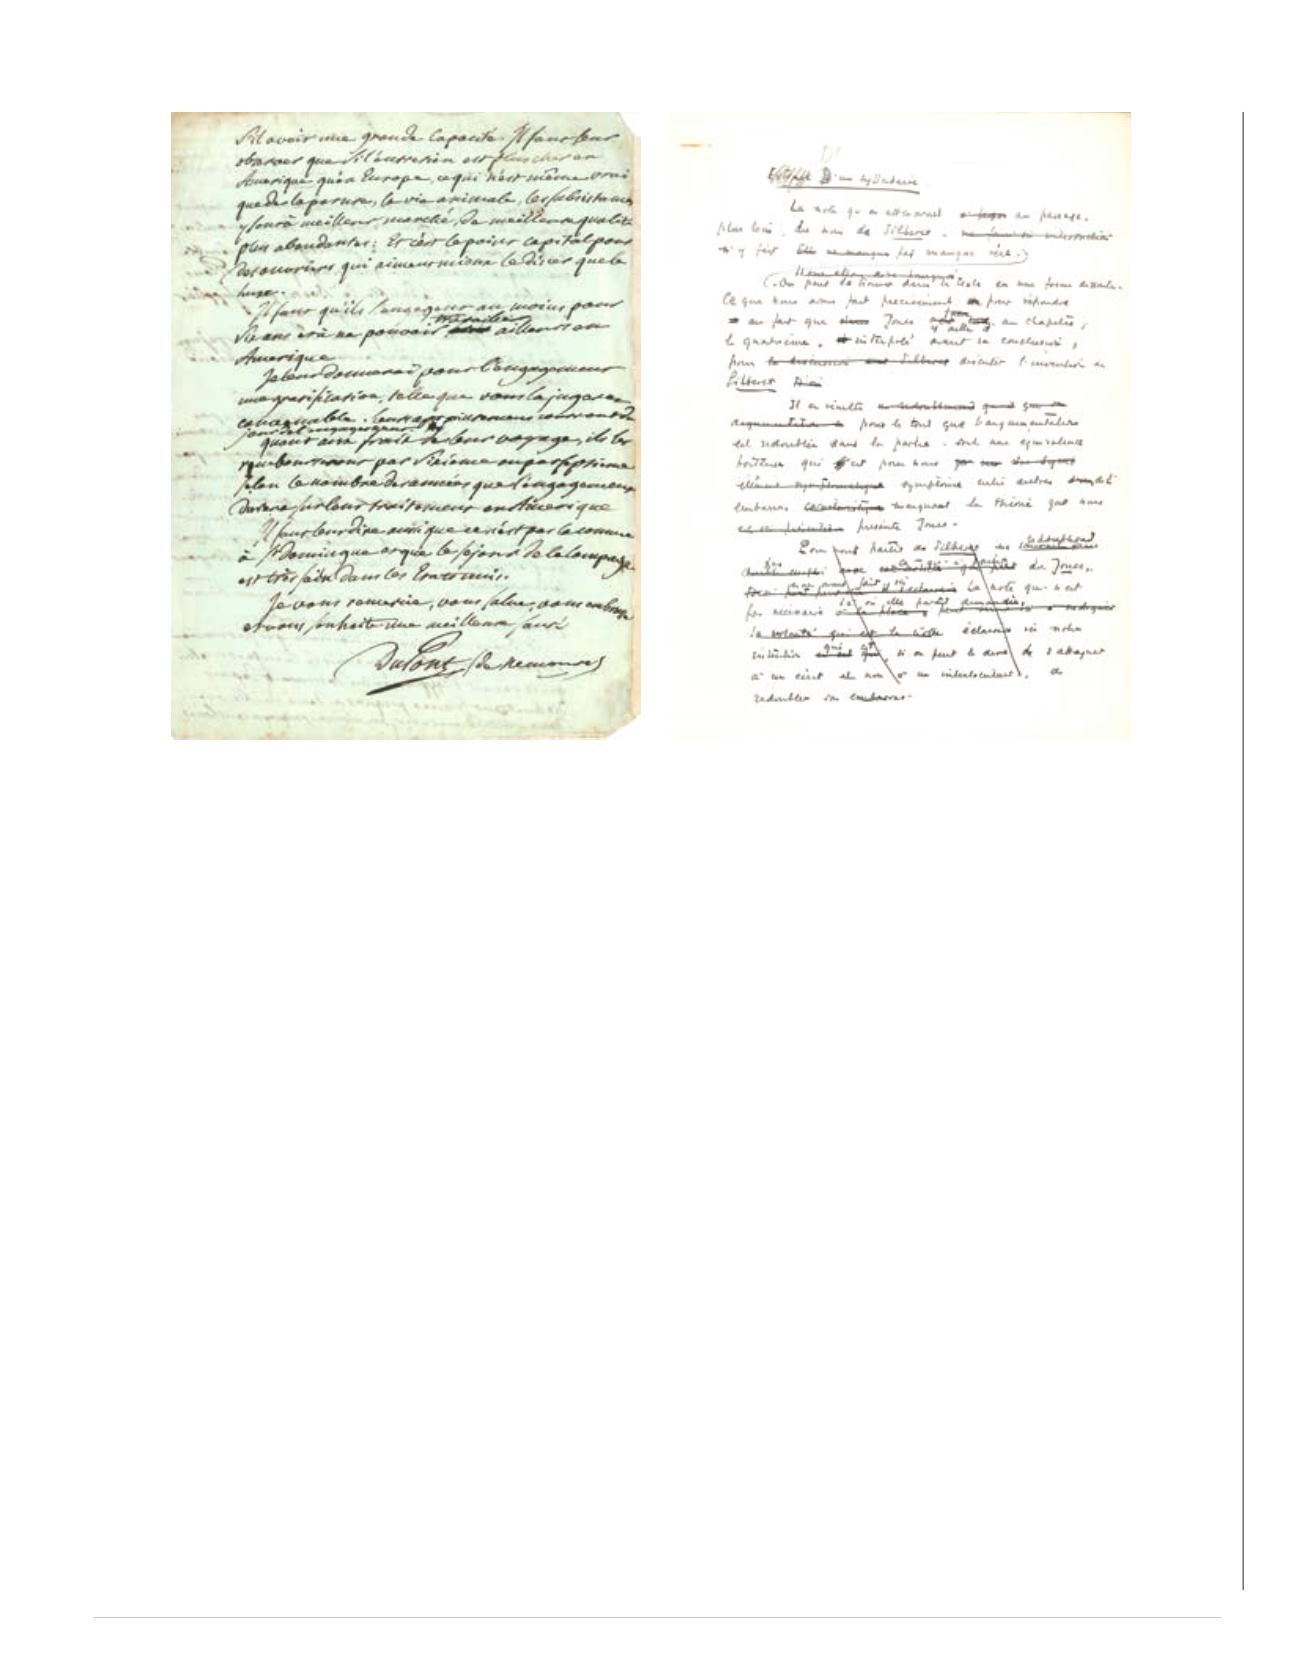 s'il avoir une grande capacité. Il faut leur
observer que si l'entretien est plus cher en
Amerique qu'en Europe, ce qui n'est même vrai
que de la parure, la vie animale, les subsistances
y sont à meilleur marché, de meilleure qualité
plus abondantes: Et c'est le point capital pour
des ouvriers qui aiment mieux le diner que le
luxe.
Il faut qu'ils s'engagent au moins pour
six ans et à ne pouvoir travailler ailleurs en
Amerique
Je leur donnerai pour l'engagement
une gratification, telle que vous la jugerez
convenable. Leurs appointemens courront du
jour de l'engagement.
quant aux frais de leur voyage, ils les
rembourseront par sixieme ou par septieme
selon le nombre des années que l'engagement
durera sur leur traitement en Amerique
Il faut leur dire aussi que ce n'est pas là comme
à St Domingue et que le séjour de la campagne
est très sain dans les Etats unis.
Je vous remercie, vous salue, vous embrasse
et vous souhaite une meilleure santé
DuPont (de Nemours)
D'un syllabaire
La note qu'on attendrait au passage,
plus loin, du nom de Silberer.
n'y fait pas manque réel.
(On peut la trouver dans le texte en une forme dissoute.
Ce que nous avons fait precisement pour répondre
au fait que Jones un chapitre,
le quatrième, interpolé avant sa conclusion,
pour discuter l'invention de
Silberer
Il en résulte
pour le tout que l'argumentation
est redoublée dans la partie, soit une equivalence
boiteuse qui est pour nous
symptôme entre autres de l'
embarras marquant la théorie que nous
presente Jones.
Silberer
de Jones,
La note qui n'est
pas nécessaire
éclairera ici notre
intention, si on peut le dire, de s'attaquer
à un écrit et non à un interlocuteur, de
redoubler son embarras.